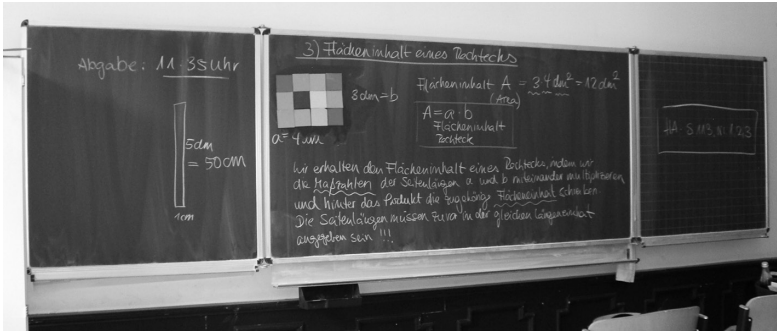 Abgabe: 11.35 Uhr
5dm
= 50cm
1cm
3) Flächeninhalt eines Rechtecks
3dm = b
Flächeninhalt A = 3·4 dm² = 12dm²
(Area)
A = a · b
Flächeninhalt
Rechteck
Wir erhalten den Flächeninhalt eines Rechtecks, indem wir
die Maßzahlen der Seitenlängen a und b miteinander multiplizieren
und hinter das Produkt die zugehörige Flächeneinheit schreiben.
Die Seitenlängen müssen zuvor in der gleichen Längeneinheit
angegeben sein !!!
HA: S. 113, Nr. 1,2,3